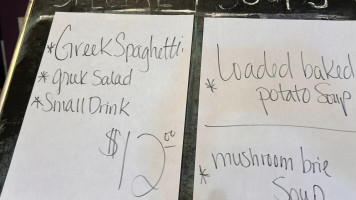 SOUPS
*Greek Spaghetti
*greek Salad
*Small Drink
$12.00
*Loaded baked
potato Soup
*mushroom brie
Soup